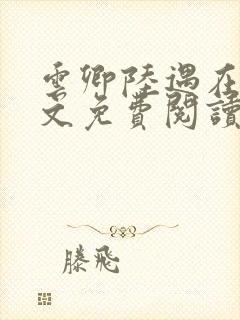 雲卿陸遇在
文免費閱讀
滕飛